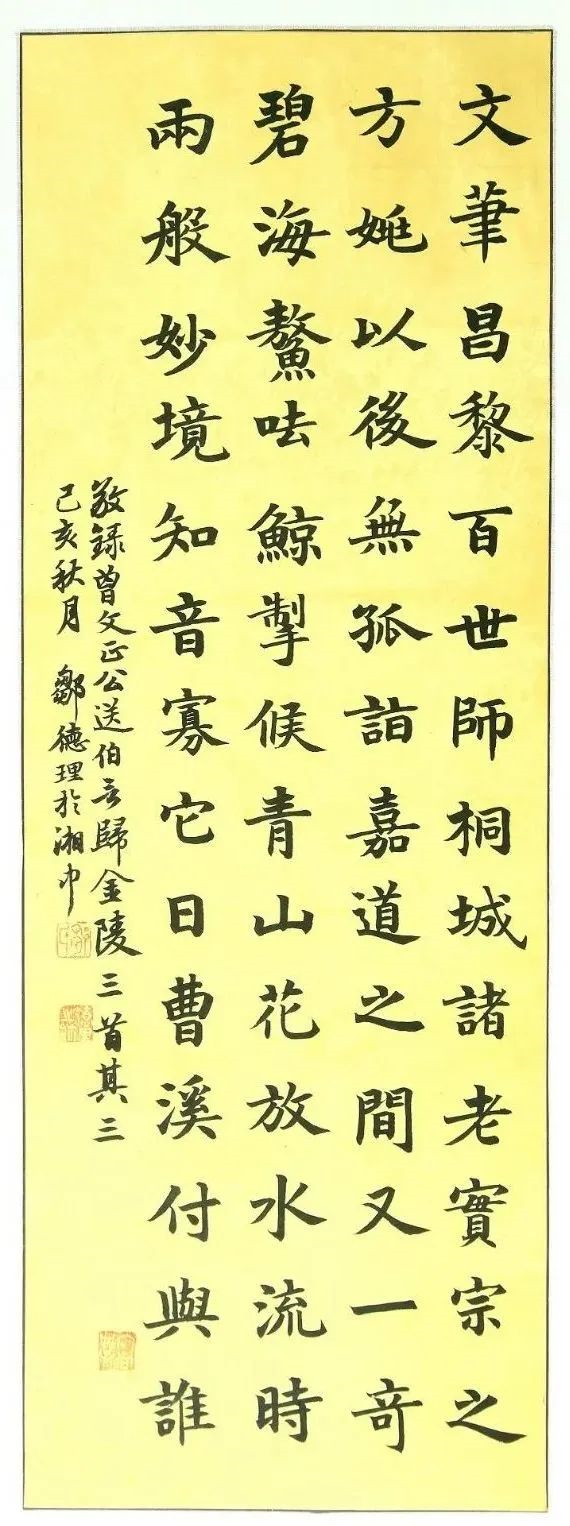 文筆昌黎百世師桐城諸老實宗之
方姚以後無孤詣嘉道之間又一奇
碧海鰲呿鯨掣候青山花放水流時
兩般妙境知音寡它日曹溪付與誰
敬録曾文正公送伯言歸金陵三首其三
己亥秋月 鄒德理於湘中